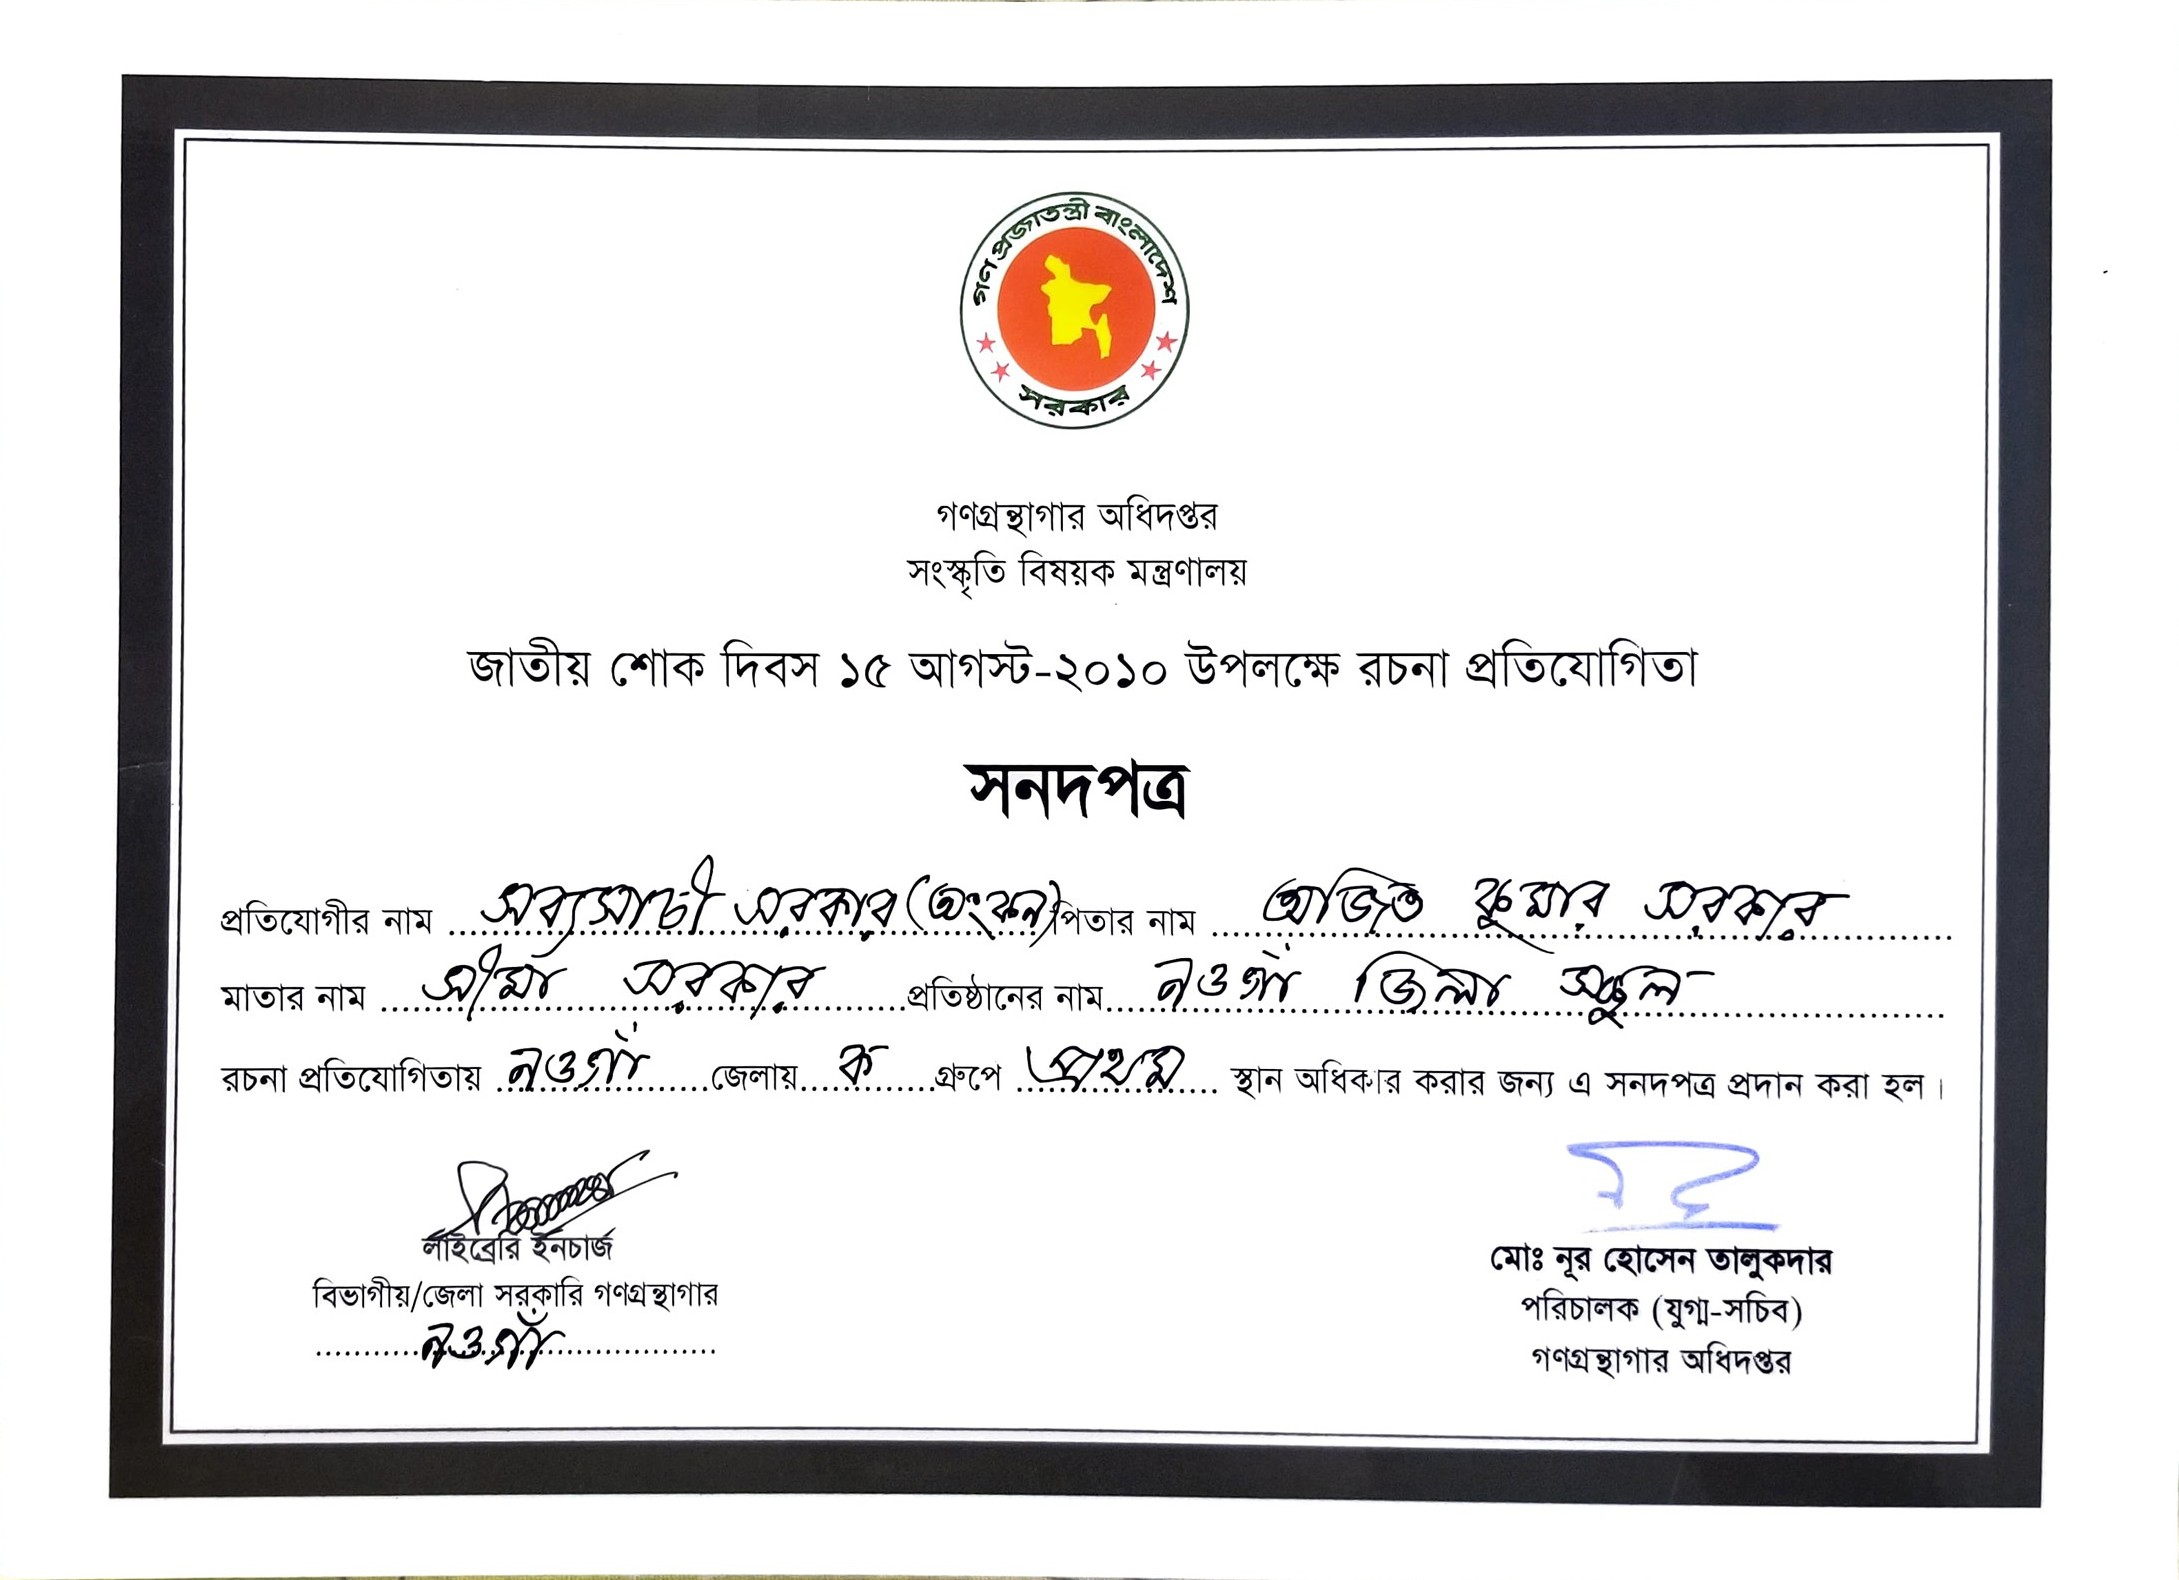 গণপ্রজাতন্ত্রী বাংলাদেশ
সরকার
গণগ্রন্থাগার অধিদপ্তর
সংস্কৃতি বিষয়ক মন্ত্রণালয়
জাতীয় শোক দিবস ১৫ আগস্ট-২০১০ উপলক্ষে রচনা প্রতিযোগিতা
সনদপত্র
প্রতিযোগীর নাম সব্যসাচী সরকার (অংকন) পিতার নাম অজিত কুমার সরকার
মাতার নাম সীমা সরকার প্রতিষ্ঠানের নাম নওগাঁ জিলা স্কুল
রচনা প্রতিযোগিতায় নওগাঁ জেলায় ক গ্রুপে প্রথম স্থান অধিকার করার জন্য এ সনদপত্র প্রদান করা হল।
লাইব্রেরি ইনচার্জ
বিভাগীয়/জেলা সরকারি গণগ্রন্থাগার
নওগাঁ
মোঃ নূর হোসেন তালুকদার
পরিচালক (যুগ্ম-সচিব)
গণগ্রন্থাগার অধিদপ্তর